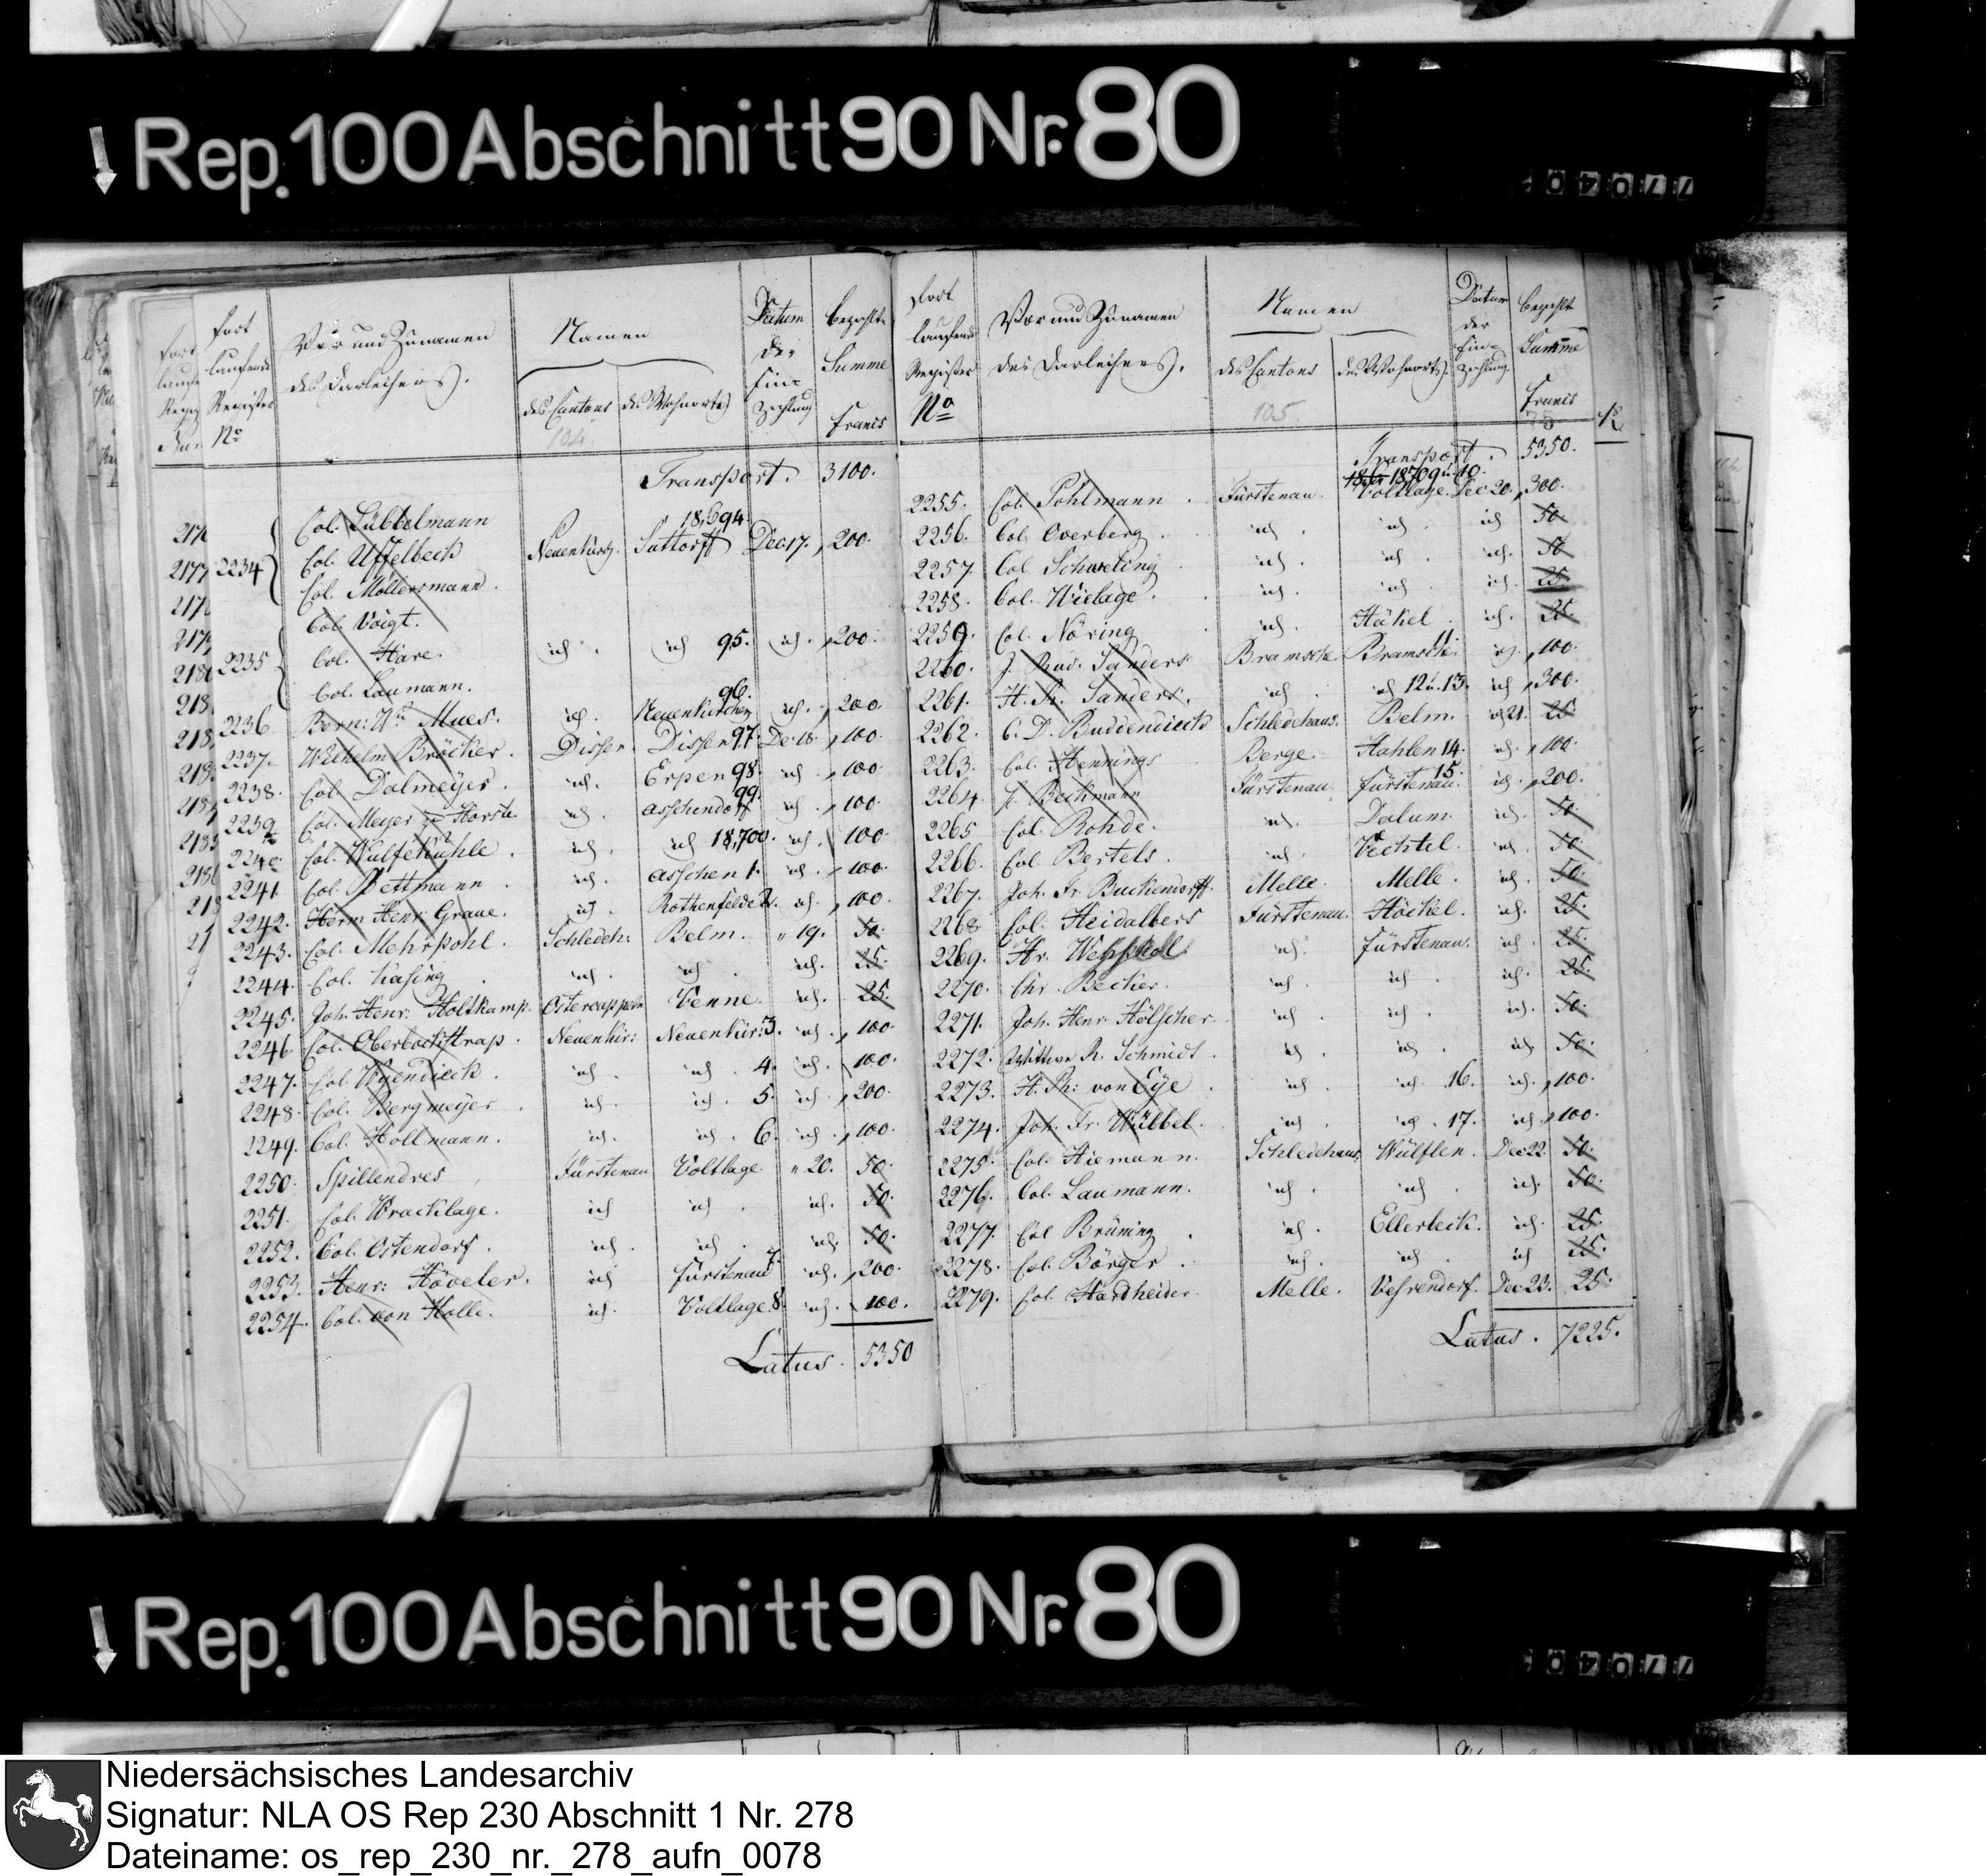 Rep. 100 Abschnitt 90 Nr. 80
Fort laufende Register No
Vor und Zunamen des Darleihers.
Namen
des Cantons
des Wohnorts
Datum der Einzahlung
bezahlte Summe francs
104.
Transport. 3100.
2234 Col. Lübbelmann
Col. Uffelbeck Neuenkirch. Suttorff 18,694 Dec 17. 200.
Col. Möllersmann.
2235 Col. Voigt.
Col. Hare. id. id 95. id. 200.
Col. Laumann.
2236 Bern: Wm Mues. id. Neuenkirchen 96. id. 200
2237. Wilhelm Bröcker. Dissen Dissen 97. De 18. 100.
2238. Col. Dalmeyer. id. Erpen 98. id. 100.
2239 Col. Meyer zu Horste. id. Asschendorff 99. id. 100.
2240 Col. Wulfekuhle. id. id 18,700. id. 100.
2241. Col. Bettmann. id. Asschen 1. id. 100.
2242. Herm Henr: Graue. id. Rothenfelde 2. id. 100.
2243. Col. Mehrpohl. Schledeh: Belm. " 19. 50.
2244. Col. Hasing id. id. id. 25.
2245. Joh. Henr: Holtkamp. Ostercappeln Venne. id. 25.
2246. Col. Oberbockstrap. Neuenkir: Neuenkir: 3. id. 100
2247. Col. Wyendieck. id. id. 4. id. 100.
2248. Col. Bergmeyer. id. id. 5. id. 200.
2249. Col. Hollmann. id. id. 6. id. 100.
2250. Spillendres Fürstenau Voltlage. " 20. 50.
2251. Col. Wracklage. id id. id. 50.
2252. Col. Ostendorf. id. id. id. 50.
2253. Henr: Höveler. id Fürstenau 7. id. 200.
2254. Col. von Holle. id. Voltlage 8. id. 100.
Latus. 5350
Fort laufende Register No
Vor und Zunamen des Darleihers.
Namen
des Cantons
des Wohnorts.
Datum der Einzahlung.
bezahlte Summe francs
105.
Transport. 5350.
2255. Col. Pohlmann. Fürstenau. Voltlage. 18709 u. 10. Dec 20. 300.
2256. Col. Overberg. id. id. id 50
2257. Col Schweling id. id. id. 50
2258. Col. Wielage. id. id. id. 25.
2259. Col. Nöring id. Häkel. id. 25
2260. J. Rud. Sanders Bramsche. Bramsche. 11. id. 100.
2261. H. R. Sanders. id. id 12 u. 13. id 300.
2262. C. D. Buddendieck Schledehaus. Belm. id 21. 25
2263. Col. Hennings Berge. Hahlen 14. id. 100.
2264. Beckmann Fürstenau. Fürstenau. 15. id. 200.
2265 Col. Rohde. id. Dalum. id. 50
2266. Col. Bertels. id. Vechtel. id. 50.
2267. Joh. Fr. Buckendorff. Melle. Melle. id. 50.
2268. Col. Heidalbers Fürstenau. Höckel. id. 25.
2269. Hr. id. Fürstenau. id. 25.
2270. Chr. Becker. id. id. id. 25.
2271. Joh. Henr. Hölscher. id. id. id. 50.
2272. Wittwe R. Schmidt. id. id. id 50.
2273. H. Ph: von Eye id. id. 16. id. 100.
2274. Joh. Fr. Wübbel. id. id. 17. id. 100.
2275. Col. Hiemann. Schledehaus. Wülften. Dec 22. 50.
2276. Col. Laumann. id. id. id. 50.
2277. Col Brüning id. Ellerbeck. id. 25.
2278. Col. Börger. id. id. id 25.
2279. Col. Hardheider. Melle. Vessendorf. Dec 23. 25.
Latus. 7225.
Rep. 100 Abschnitt 90 Nr. 80
Niedersächsisches Landesarchiv
Signatur: NLA OS Rep 230 Abschnitt 1 Nr. 278
Dateiname: os_rep_230_nr._278_aufn_0078